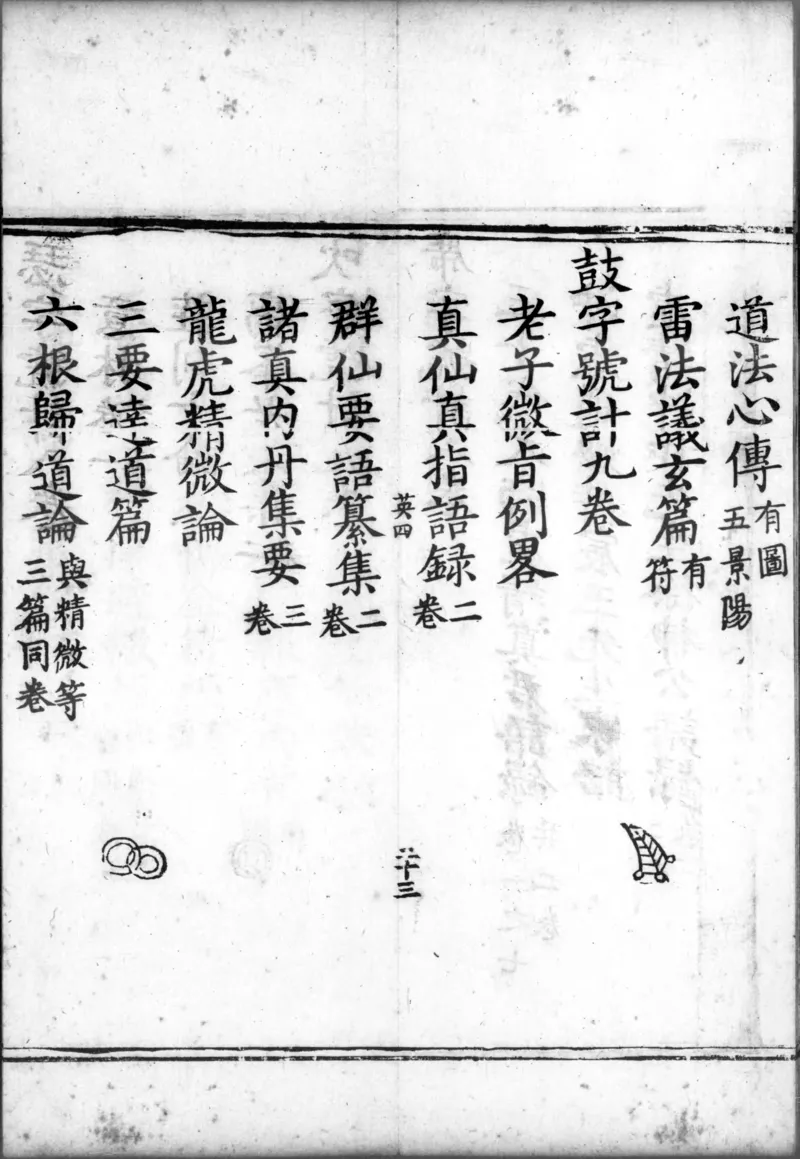 道法心傳有圖五景陽
雷法議玄篇有符
鼓字號計九卷
老子微旨例畧
真仙真指語録二卷
英四
群仙要語纂集二卷
諸真内丹集要三卷
龍虎精微論
三要達道篇
六根歸道論與精微等三篇同卷